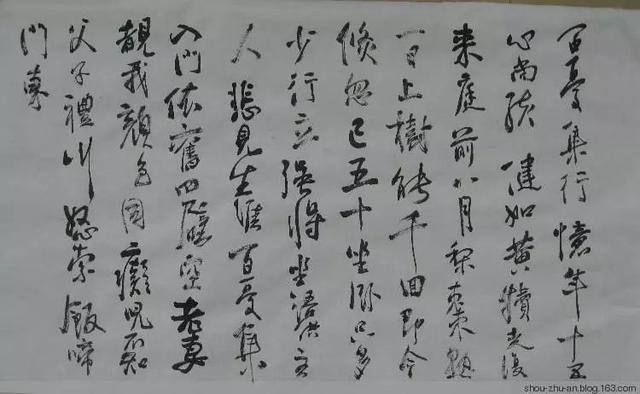 百憂集行憶年十五
心尚孩健如黃犢走復
来庭前八月梨棗熟
一日上樹能千回即今
倐忽已五十坐卧只多
少行立强將笑語供主
人悲見生涯百憂集
入門依舊四壁空老妻
覩我顔色同癡兒不知
父子禮叫怒索飯啼
門東
shou-zhu-an.blog.163.com